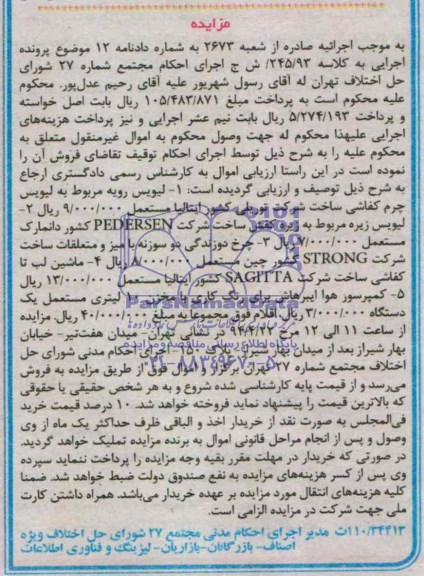 مزایده
به موجب اجرائیه صادره از شعبه ۲۶۷۳ به شماره دادنامه ۱۲ موضوع پرونده
اجرایی به کلاسه ۲۴۵/۹۳/ ش ج اجرای احکام مجتمع شماره ۲۷ شورای
حل اختلاف تهران له آقای رسول شهریور علیه آقای رحیم عدل‌پور. محکوم
علیه محکوم است به پرداخت مبلغ ۱۰۵/۴۸۳/۸۷۱ ریال بابت اصل خواسته
و پرداخت ۵/۲۷۴/۱۹۳ ریال بابت نیم عشر اجرایی و نیز پرداخت هزینه‌های
اجرایی علیهذا محکوم له جهت وصول محکوم به اموال غیرمنقول متعلق به
محکوم علیه را به شرح ذیل توسط اجرای احکام توقیف تقاضای فروش آن را
نموده است در این راستا ارزیابی اموال به کارشناس رسمی دادگستری ارجاع
به شرح ذیل توصیف و ارزیابی گردیده است: ۱- لیویس رویه مربوط به لیویس
چرم کفاشی ساخت شرکت توریلی کشور ایتالیا مستعمل ۹/۰۰۰/۰۰۰ ریال ۲-
لیویس زیره مربوط به زیره کفش ساخت شرکت PEDERSEN کشور دانمارک
مستعمل ۷/۰۰۰/۰۰۰ ریال ۳- چرخ دوزندگی دو سوزنه با میز و متعلقات ساخت
شرکت STRONG کشور چین مستعمل ۸/۰۰۰/۰۰۰ ریال ۴- ماشین لب تا
کفاشی ساخت شرکت SAGITTA کشور ایتالیا مستعمل ۱۳/۰۰۰/۰۰۰ ریال
۵- کمپرسور هوا ایبرهاش برای رنگ کاری با مخزن لیتری مستعمل یک
دستگاه ۳/۰۰۰/۰۰۰ ریال. اقلام فوق مجموعا به مبلغ ۴۰/۰۰۰/۰۰۰ ریال. مزایده
از ساعت ۱۱ الی ۱۲ مرخ ۹۴/۴/۲۲ در نشانی تهران- میدان هفت‌تیر- خیابان
بهار شیراز بعد از میدان بهار شیراز- پلاک ۱۵۰- اجرای احکام مدنی شورای حل
اختلاف مجتمع شماره ۲۷ تهران برگزار و اموال فوق از طریق مزایده به فروش
می‌رسد و از قیمت پایه کارشناسی شده شروع و به هر شخص حقیقی یا حقوقی
که بالاترین قیمت را پیشنهاد نماید فروخته خواهد شد. ۱۰ درصد قیمت خرید
فی‌المجلس به صورت نقد از خریدار اخذ و الباقی ظرف حداکثر یک ماه از وی
وصول و پس از انجام مراحل قانونی اموال به برنده مزایده تملیک خواهد گردید.
در صورتی که خریدار در مهلت مقرر بقیه وجه مزایده را پرداخت ننماید سپرده
وی پس از کسر هزینه‌های مزایده به نفع صندوق دولت ضبط خواهد شد. ضمنا
کلیه هزینه‌های انتقال مورد مزایده بر عهده خریدار می‌باشد. همراه داشتن کارت
ملی جهت شرکت در مزایده الزامی است.
۱۱۰/۳۴۴۱۳ت مدیر اجرای احکام مدنی مجتمع ۲۷ شورای حل اختلاف ویژه
اصناف- بازرگانان- بازاریان- لیزینگ و فناوری اطلاعات